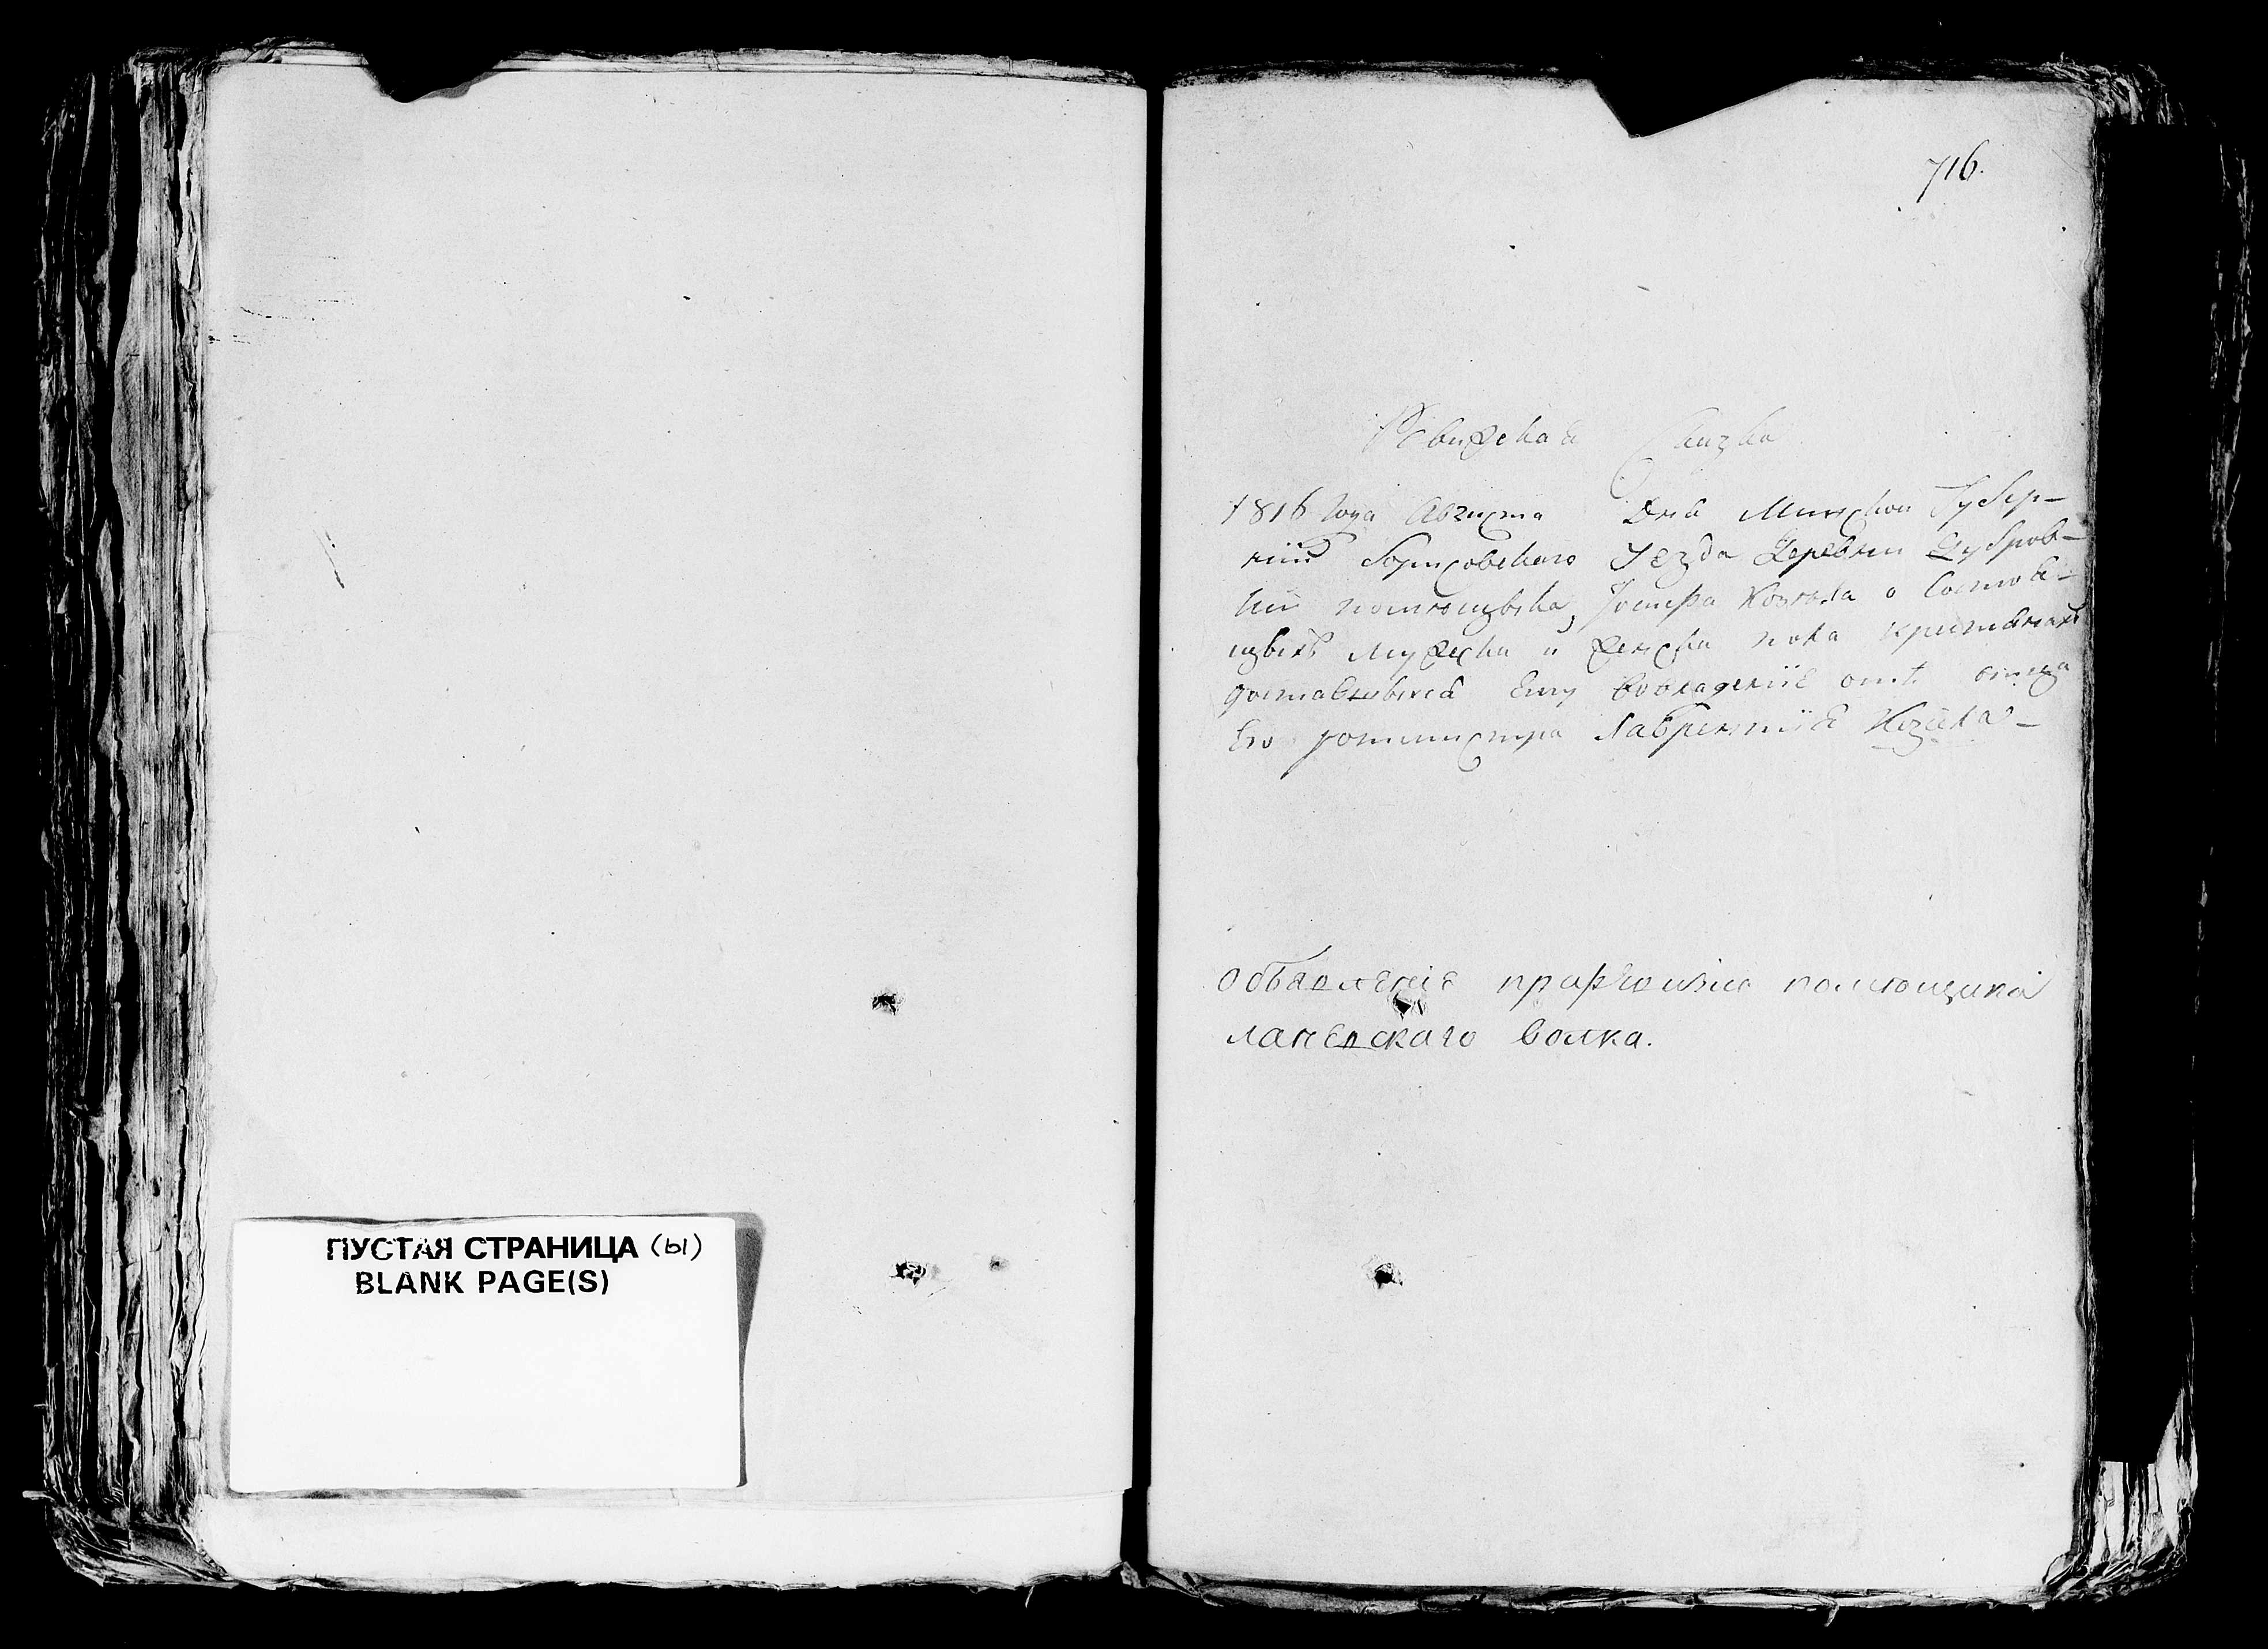 ПУСТАЯ СТРАНИЦА (ы)
BLANK PAGE(S)
716.
Ревизская Сказка
1816 Года Августа Дня Минской Губер-
нии Борисовского Уезда Деревни Дубров-
ки помещика Иосифа Козела о Состоя-
щихъ мужеска и женска пола крестьянахъ
доставшихся Ему вовладение отъ отца
Его ротмистра Лаврентия Козела
Объявление помещика
волка.